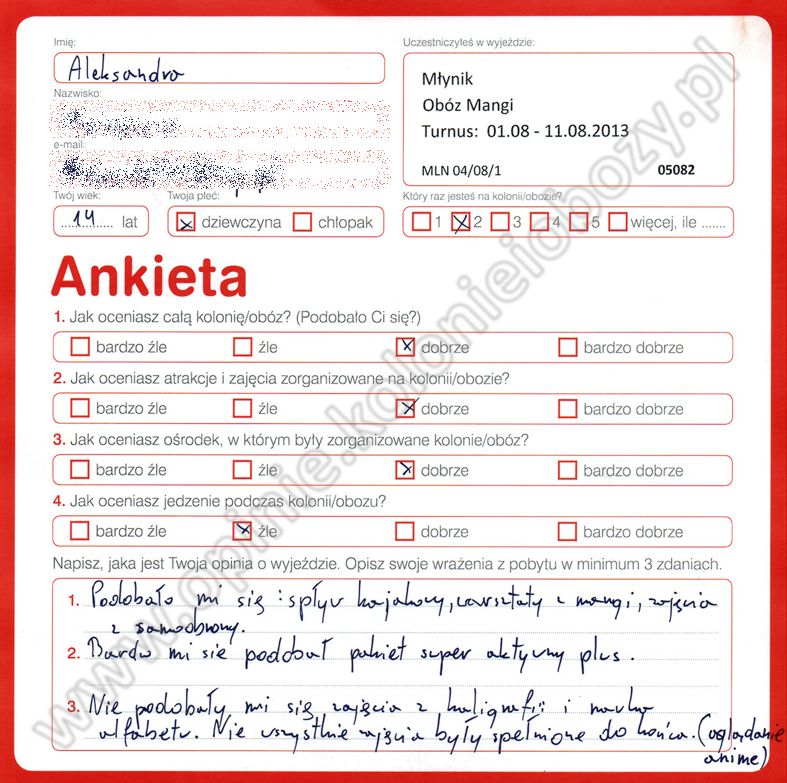 Imię:
Aleksandra
Nazwisko:
e-mail:
Twój wiek:
14 lat
Twoja płeć:
dziewczyna chłopak
Uczestniczyłeś w wyjeździe:
Młynik
Obóz Mangi
Turnus: 01.08 - 11.08.2013
MLN 04/08/1 05082
Który raz jesteś na kolonii/obozie?
1 2 3 4 5 więcej, ile .......
Ankieta
1. Jak oceniasz całą kolonię/obóz? (Podobało Ci się?)
bardzo źle źle dobrze bardzo dobrze
2. Jak oceniasz atrakcje i zajęcia zorganizowane na kolonii/obozie?
bardzo źle źle dobrze bardzo dobrze
3. Jak oceniasz ośrodek, w którym były zorganizowane kolonie/obóz?
bardzo źle źle dobrze bardzo dobrze
4. Jak oceniasz jedzenie podczas kolonii/obozu?
bardzo źle źle dobrze bardzo dobrze
Napisz, jaka jest Twoja opinia o wyjeździe. Opisz swoje wrażenia z pobytu w minimum 3 zdaniach.
1. Podobało mi się : spływ kajakowy, warsztaty z mangi, zajęcia
z samoobrony.
2. Bardzo mi się podobał pakiet super aktywny plus.
3. Nie podobały mi się zajęcia z kaligrafii i nauka
alfabetu. Nie wszystkie zajęcia były spełnione do końca. (oglądanie
anime)
www.opinie.kolonieiobozy.pl